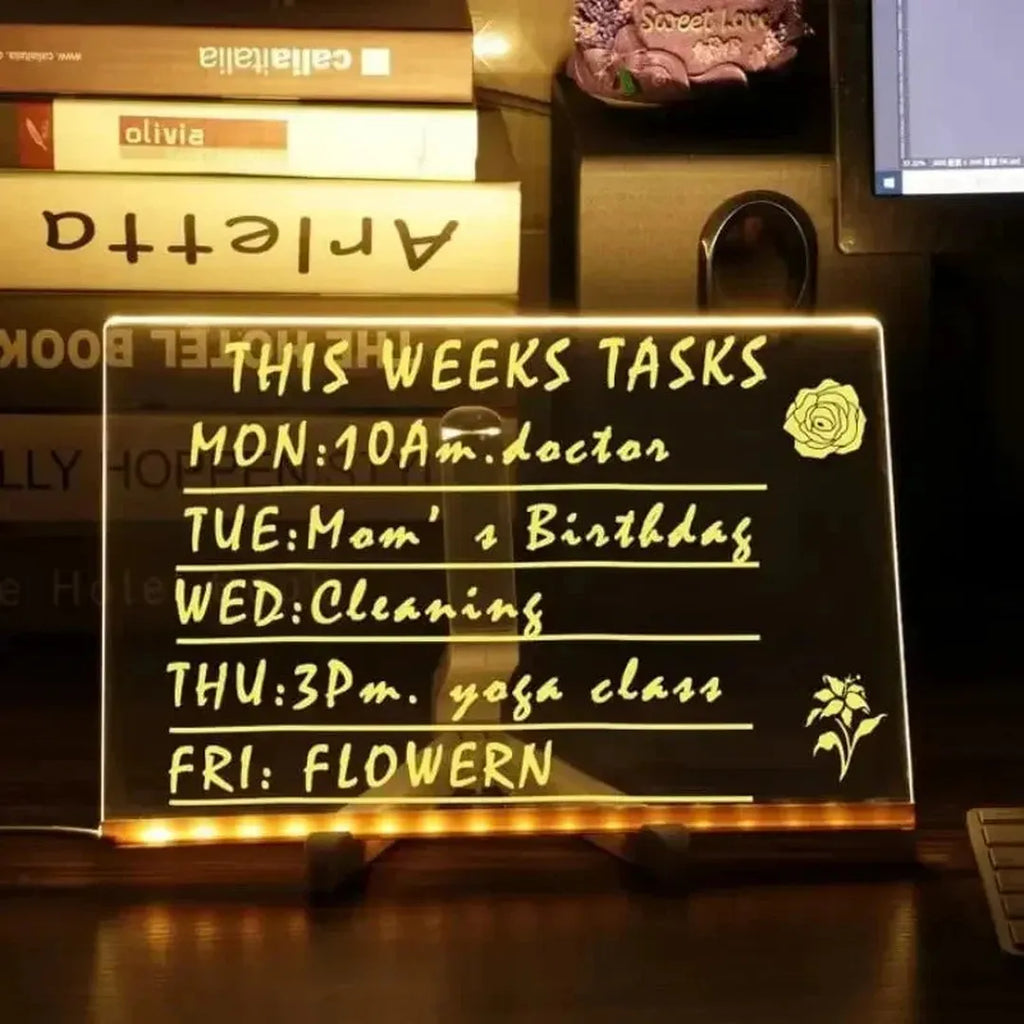 Sweet Love
www.caliaitalia.
caliaitalia
olivia
Arletta
THE HOTEL BOOK
LLY HOPPEN STYL
e Hole
THIS WEEKS TASKS
MON:10Am.doctor
TUE:Mom's Birthday
WED:Cleaning
THU:3Pm. yoga class
FRI: FLOWERN